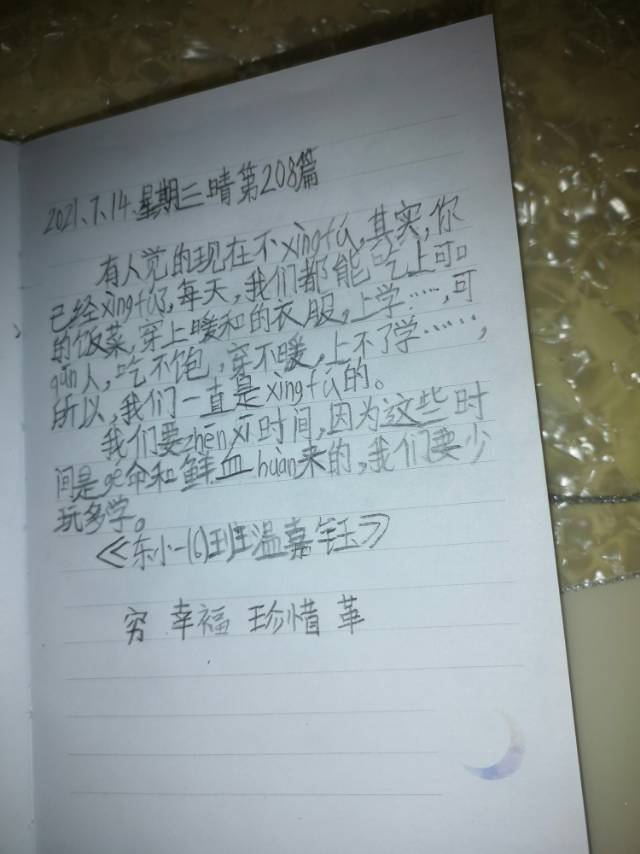 2021.7.14.星期三晴第208篇
有人觉的现在不xìngfú,其实,你
已经xìngfú了,每天,我们都能吃上可口
的饭菜,穿上暖和的衣服,上学……,可
qióng人,吃不饱,穿不暖,上不了学……,
所以,我们一直是xìngfú的。
我们要zhēnxī时间,因为这些时
间是gé命和鲜血huàn来的,我们要少
玩多学。
《东小一(6)班温嘉钰》
穷 幸福 珍惜 革